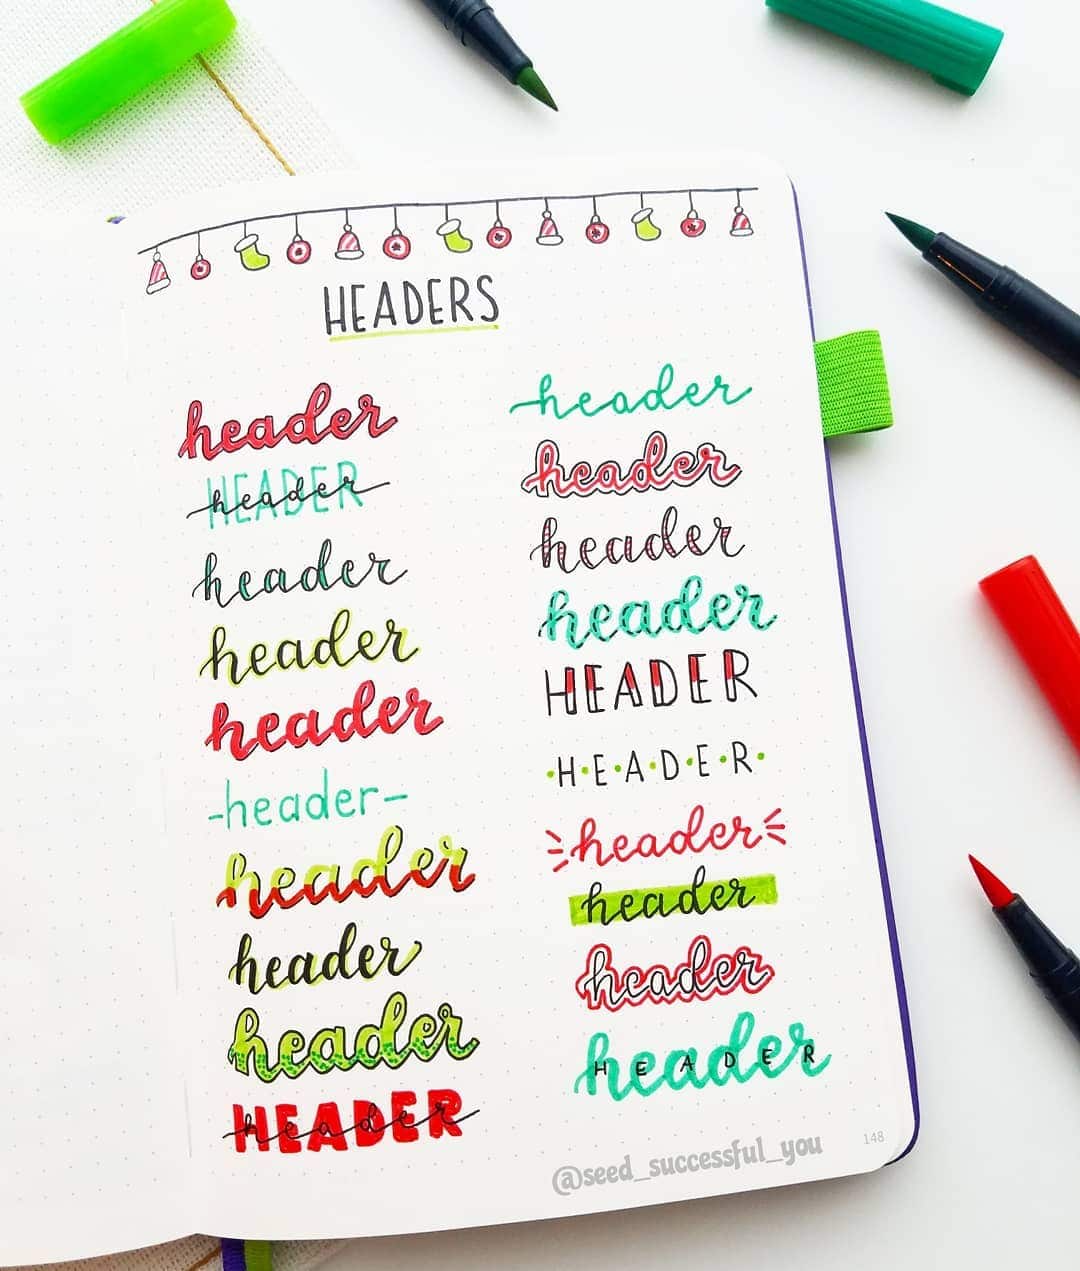 HEADERS
header
HEADER
header
header
header
header
-header-
header
header
header
HEADER
header
header
header
header
header
HEADER
·H·E·A·D·E·R·
header
header
header
header
HEADER
@seed_successful_you
148